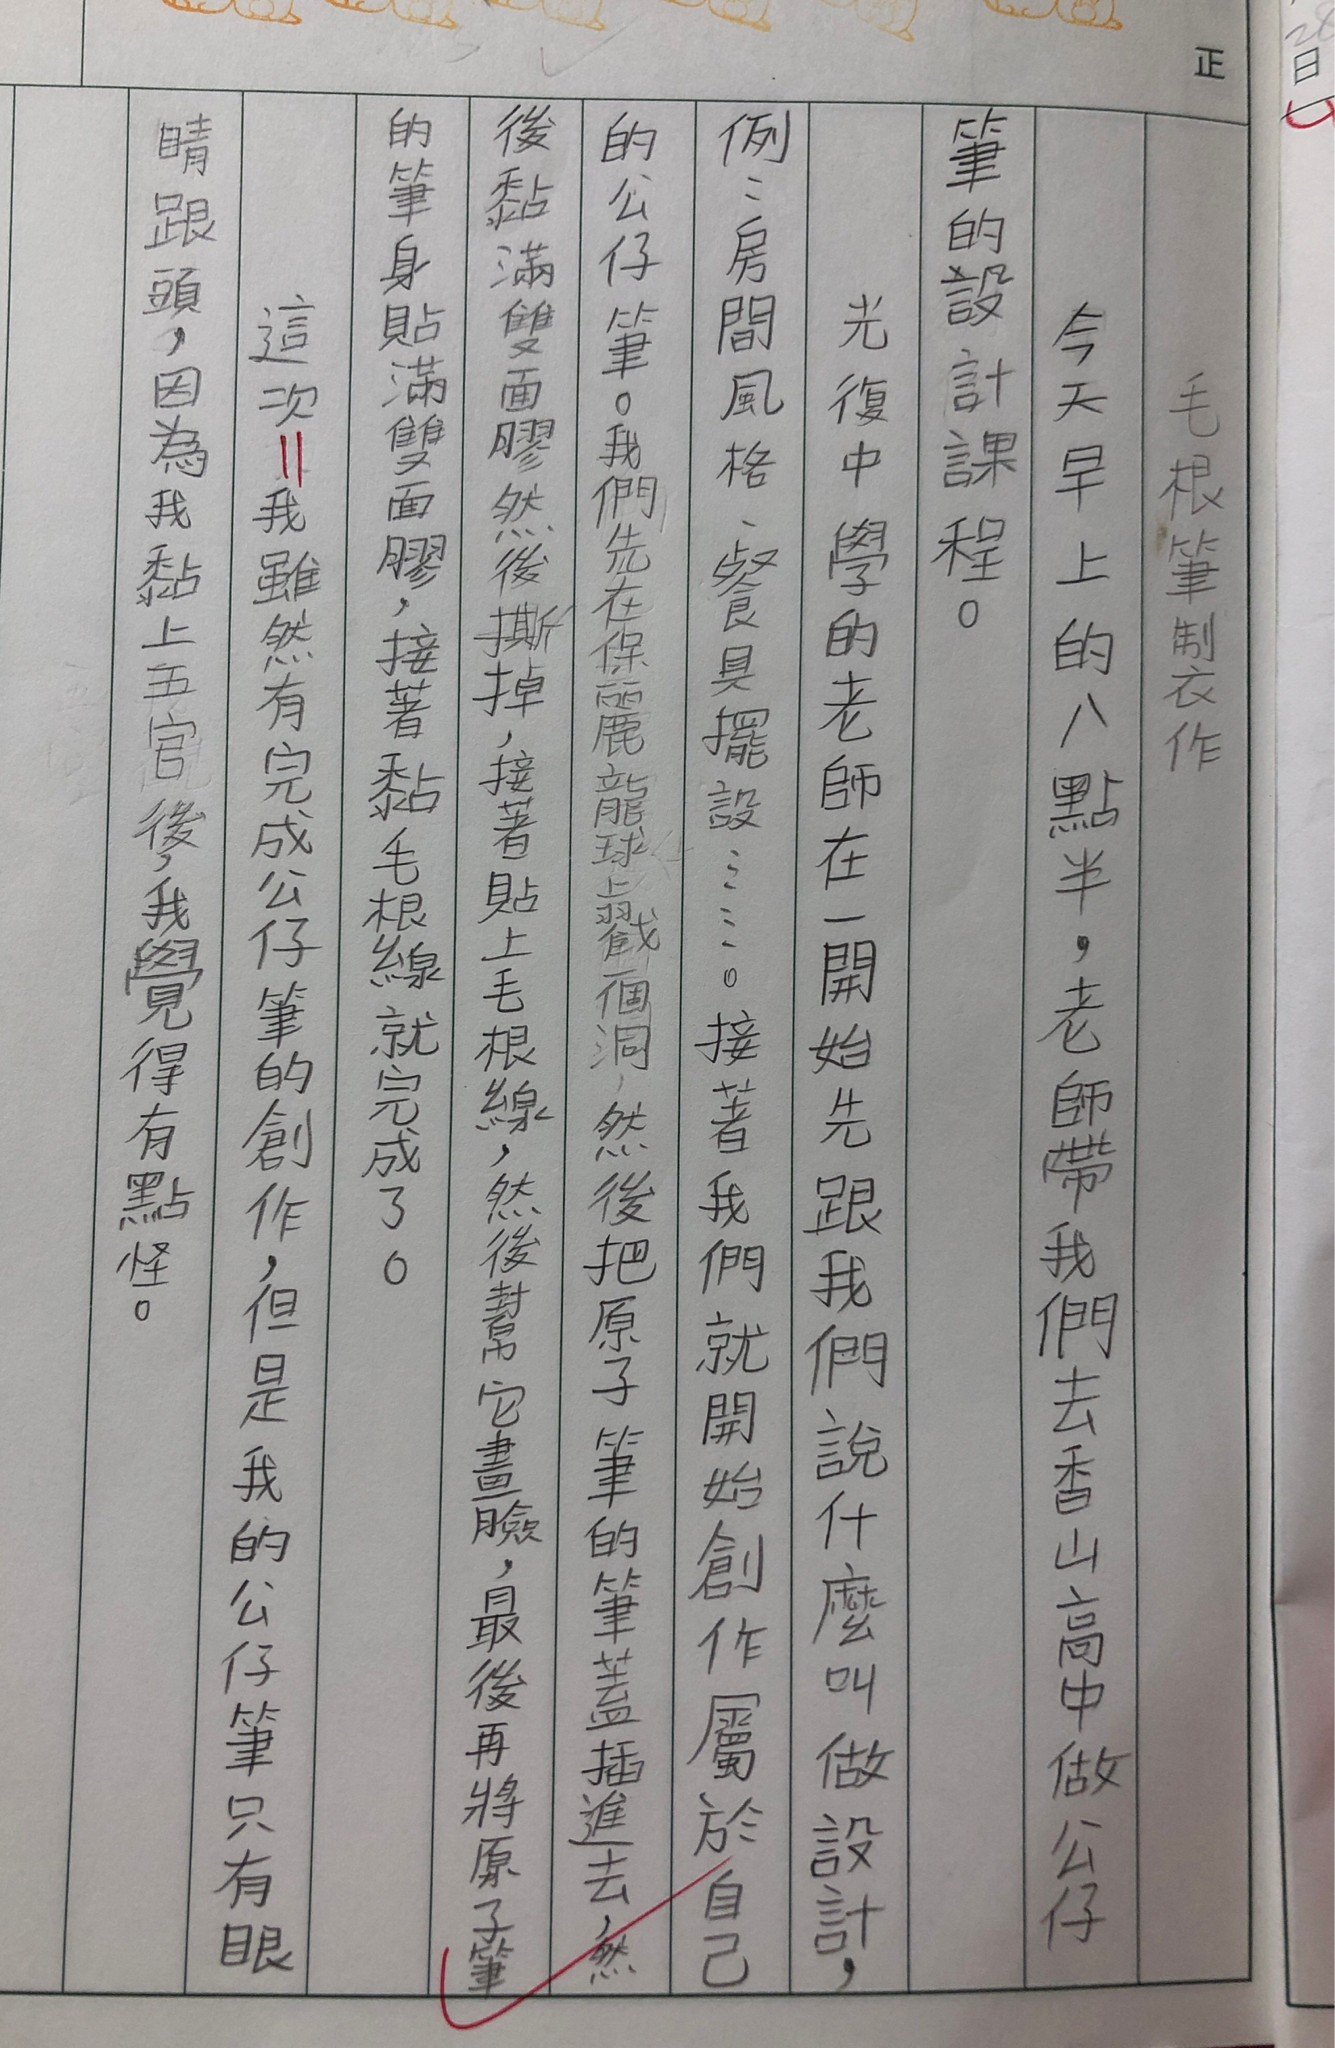 28
日
正
毛根筆制衣作
今天早上的八點半，老師帶我們去香山高中做公仔
筆的設計課程。
光復中學的老師在一開始先跟我們說什麼叫做設計，
例：房間風格、餐具擺設……。接著我們就開始創作屬於自己
的公仔筆。我們先在保麗龍球上戳個洞，然後把原子筆的筆蓋插進去，然
後黏滿雙面膠然後撕掉，接著貼上毛根線，然後幫它畫臉，最後再將原子筆
的筆身貼滿雙面膠，接著黏毛根線就完成了。
這次＝我雖然有完成公仔筆的創作，但是我的公仔筆只有眼
睛跟頭，因為我黏上五官後，我覺得有點怪。